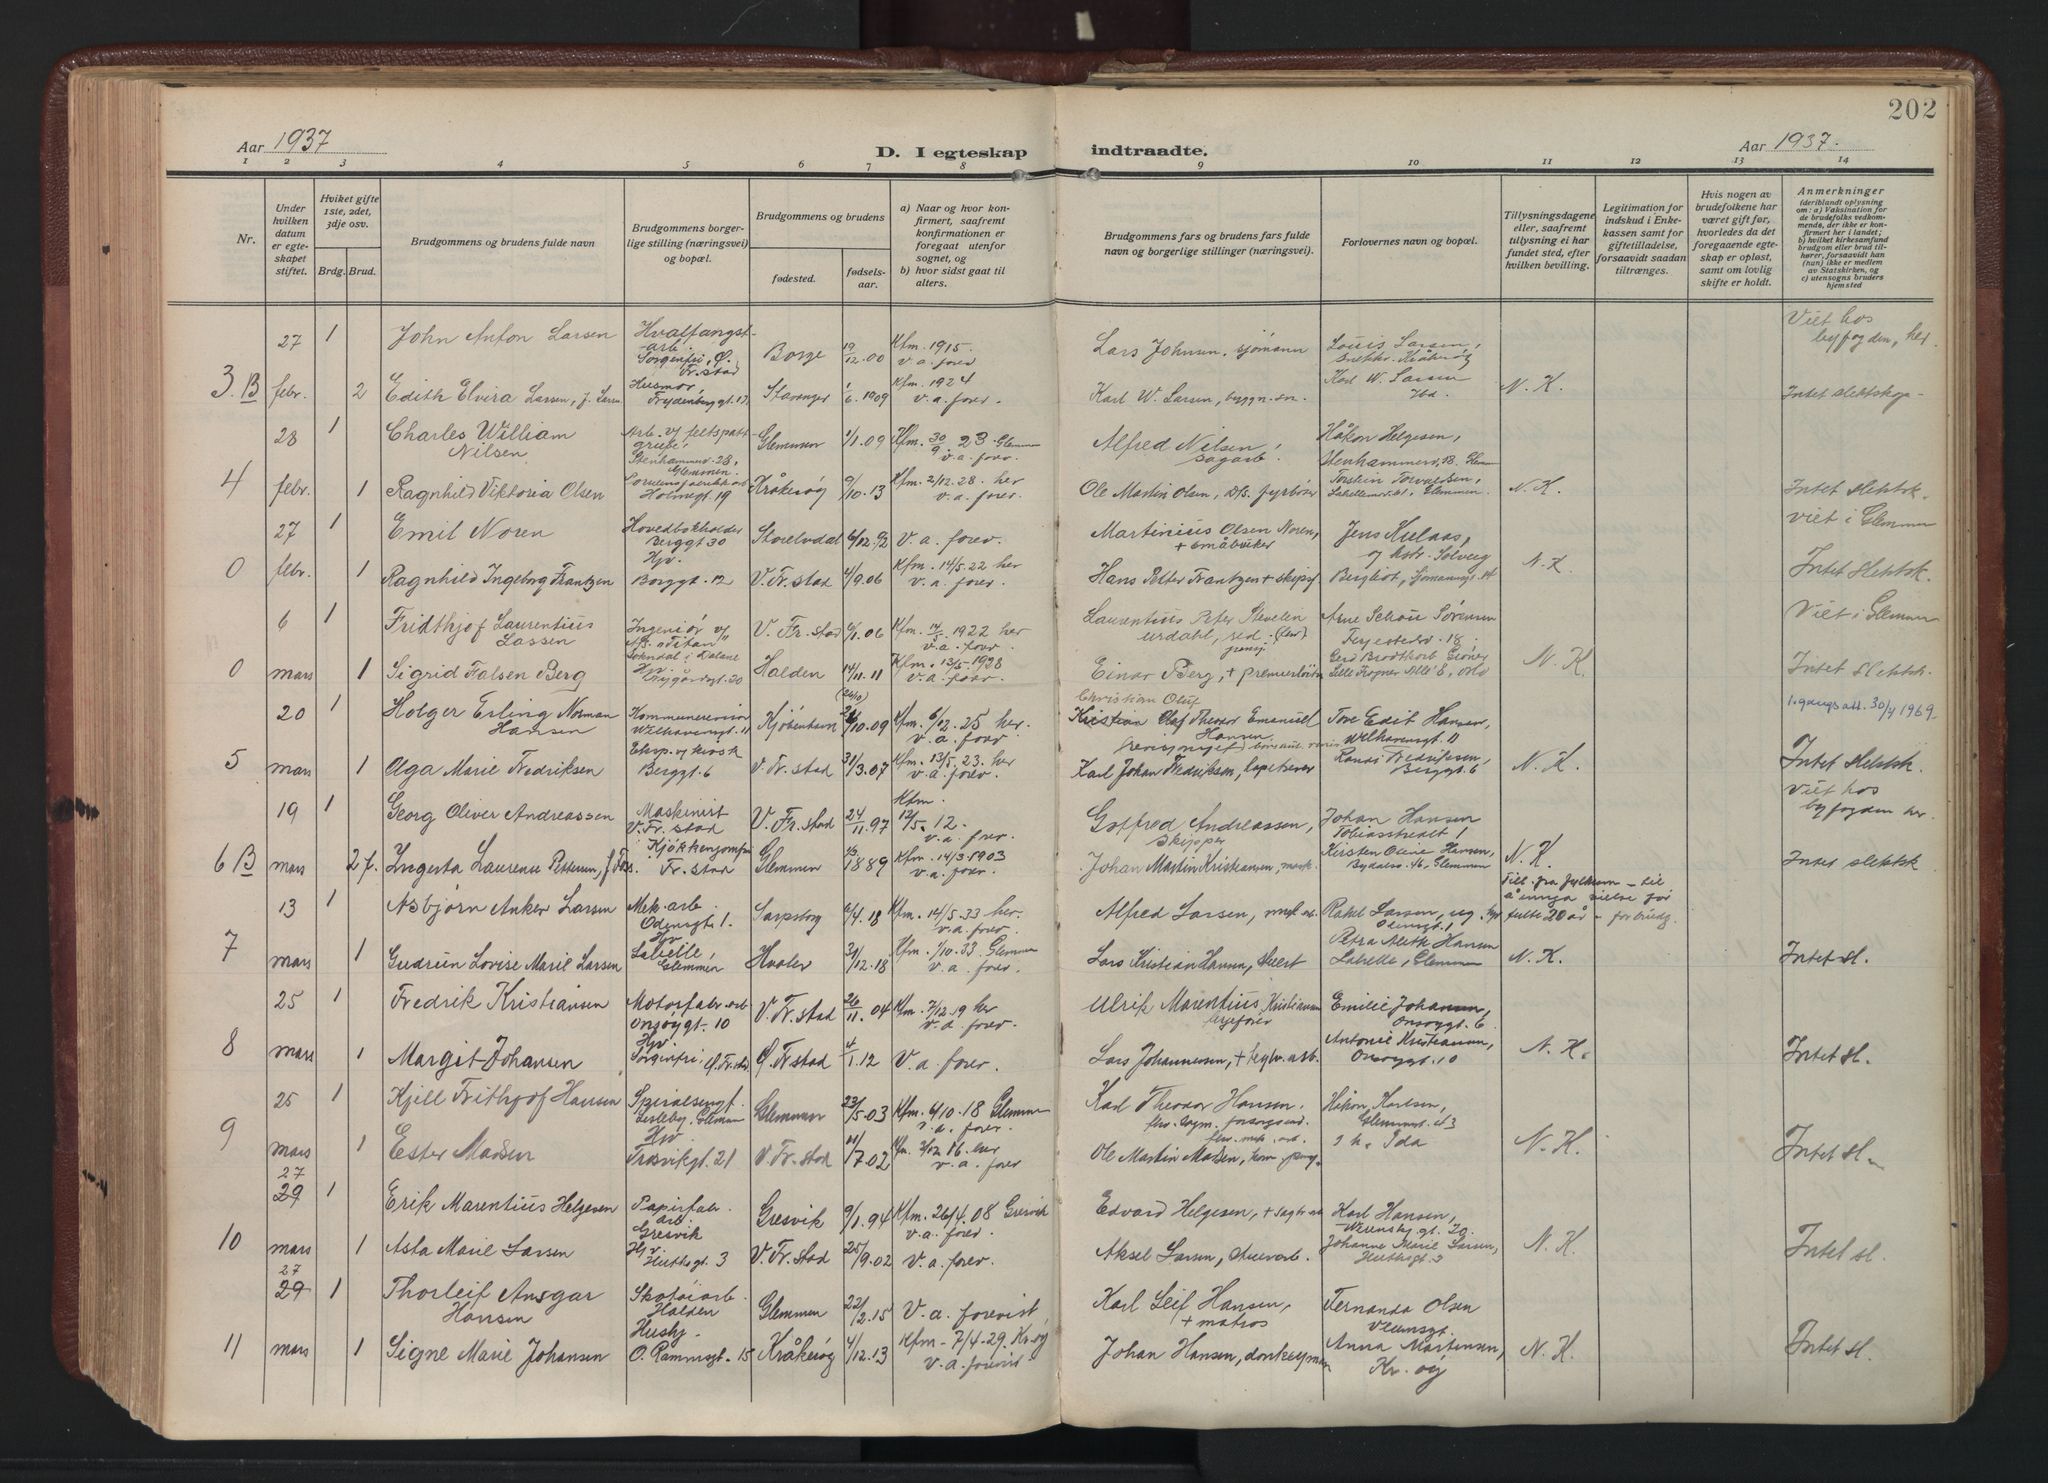 202
Aar 1937
D. I egteskap indtraadte.
Aar 1937.
1 2 3 4 5 6 7 8 9 10 11 12 13 14
Nr.
Under hvilken datum er egteskapet stiftet.
Hviket gifte 1ste, 2det, 3dje osv.
Brdg. Brud.
Brudgommens og brudens fulde navn
Brudgommens borgerlige stilling (næringsvei) og bopæl.
Brudgommens og brudens
fødested.
fødselsaar.
a) Naar og hvor konfirmert, saafremt konfirmationen er foregaat utenfor sognet, og
b) hvor sidst gaat til alters.
Brudgommens fars og brudens fars fulde navn og borgerlige stillinger (næringsvei).
Forlovernes navn og bopæl.
Tillysningsdagene eller, saafremt tillysning ei har fundet sted, efter hvilken bevilling.
Legitimation for indskud i Enkekassen samt for giftetilladelse, forsaavidt saadan tiltrænges.
Hvis nogen av brudefolkene har været gift før, hvorledes da det foregaaende egteskap er opløst, samt om lovlig skifte er holdt.
Anmerkninger (deriblandt oplysning om: a) Vaksination for de brudefolks vedkommende, der ikke er konfirmert her i landet; b) hvilket kirkesamfund brudgom eller brud tilhører, forsaavidt han (hun) ikke er medlem av Statskirken, og c) utensogns bruders hjemsted
27 1 John Anton Larsen Hvalfangstarb. Sorgenfri, Ø. Fr.stad Borge 19/12.00 Kfm. 1915. v. a. forev Lars Johnsen, sjömann Louis Larsen, Kråkerøy Viet hos byfogden, her.
3 B febr. 2 Edith Elvira Larsen, f. Larsen Husmor, Frydenberggt. 17 Stavanger 1/6.1909 Kfm. 1924 v. a. forev. Karl W. Larsen Karl W. Larsen Ibd. N. K. Intet slektskap
28 1 Charles William Nilsen Arb. v/ feltspatt grube Stenhammerv. 28, Glemmen Glemmen 1/1.09 Kfm. 30/9 23. Glemmen v. a. forev. Alfred Nilsen, sagarb. Håkon Helgesen, Stenhammerv. 18. Glemm
4 febr. 1 Ragnhild Viktoria Olsen Holmegt 19 Kråkerøy 9/10.13 Kfm. 2/12.28. her v. a. forev Ole Martin Olsen, fyrbøter Torstein Torvaldsen, Glemmen. N. K. Intet slektsk.
27 1 Emil Noren Hovedbokholder Berggt 30 Storelvdal 6/12.92 V. a. forev. Martinius Olsen Noren, + småbruker Jens Hulaas, og Viet i Glemmen
0 febr. 1 Ragnhild Ingeborg Frantzen Hjv. Borggt. 12 V. Fr.stad 4/9.06 Kfm. 14/5.22 her v. a. forev Hans Petter Frantzen + Bergliot, Sjömannsgt. 14 N. K. Intet slektsk.
6 1 Fridthjof Laurentius Lassen Ingeniör v/ A/S Titan Sokndal i Dalane V. Fr. stad 6/1.06 Kfm. 14/5 1922 her v. a. forev. Laurentius Peter Stevelin Urdahl, red. Arne Schou Sørensen Ferjestedsv. 18. Viet i Glemmen
0 mars 1 Sigrid Falsen Berg Hjv. Nygårdsgt. 20 Halden 14/11.11 Kfm. 13/5.1928 v. a. forev Einar Berg, + premierløitn Gerd Brodtkorb Grøner Lille Frogner Allé 8, Oslo N. K. Intet slektsk.
20 1 Holger Erling Norman Hansen Kommunerevisor Wilhavensgt. 11 Kjöbenhavn (26/10) 10.09 Kfm. 6/12.25 her. v. a. forev Christian Oluf Kristian Olaf Theodor Emanuel Hansen Tove Edit Hansen, Welhavensgt. 11 1. gangs att. 30/4 1969
5 mars 1 Olga Marie Fredriksen Eksp. v/ kiosk Berggt. 6 V. Fr. stad 31/3.07 Kfm. 13/5.23. her v. a. forev. Karl Johan Fredriksen, tapetserer Randi Fredriksen, Berggt. 6 N. K. Intet slektsk.
19 1 Georg Oliver Andreassen Maskinist V. Fr. stad V. Fr. stad 24/11.97 Kfm. 12/5.12. v. a. forev. Gotfred Andreassen, skipper Johan Hansen Tobiasstredet 1 Viet hos byfogden her.
6 B mars 2 f. Ingerta Laurense Pettersen, f. Kjökkenjomfru Fr. stad Glemmen 1889 Kfm. 14/3.1903 v. a. forev. Johan Martin Kristiansen, mask. Kirsten Oline Hansen, Glemmen N. K. Intet slektsk
13 1 Asbjörn Anker Larsen Mek. arb. Odensgt 1. Sarpsborg 6/4.18 Kfm. 14/5.33 her. v. a. forev. Alfred Larsen, mek. arb. Rakel Larsen, Odensgt. 1 Till. fra fylkesm til å inngå vielse før fylte 20 år - for brudg.
7 mars 1 Gudrun Lovise Marie Larsen Hjv Labelle, Glemmen Hvaler 30/12.18 Kfm. 1/10.33 Glemmen v. a. forev. Lars Kristian Hansen, Petra Aleth Hansen Labelle, Glemmen N. K. Intet sl.
25 1 Fredrik Kristiansen Motorfabr. arb Onsöygt. 10 V. Fr. stad 26/11.04 Kfm. 7/12.19 her v. a. forev. Ulrik Marentius Kristiansen Emilie Johansen, Onsøygt. 6
8 mars 1 Margit Johansen Hjv. Sorgenfri, Ø. Fr.stad Ø. Fr. stad 4/1.12 V. a. forev. Lars Johannesen, + teglv. arb. Antonie Kristiansen, Onsöygt. 10 N. K. Intet sl.
25 1 Kjell Frithjof Hansen Lisleby, Glemmen Glemmen 23/5.03 Kfm. 6/10.18 Glemmen v. a. forev. Karl Theodor Hansen. Håkon Karlsen, Glemmengt. 43
9 mars 1 Ester Madsen Hjv Trosvikgt. 21 V. Fr. stad 11/7.02 Kfm. 3/12.16. her v. a. forev Ole Martin Madsen, Ida N. K. Intet sl.
27 29 1 Erik Marentius Helgesen Papirfabr. arb Gresvik Gresvik 9/1.94 Kfm. 26/4.08 Gresvik v. a. forev. Edvard Helgesen, + Karl Hansen,
10 mars 1 Asta Marie Larsen Hjv. 3 V. Fr. stad 25/9.02 V. a. forev. Aksel Larsen, Johanne Marie Larsen, N. K. Intet sl.
27 29 1 Thorleif Ansgar Hansen Skotöiarb. Halden Glemmen 22/2.15 V. a. forevist Karl Leif Hansen, + matros Fernanda Olsen
11 mars 1 Signe Marie Johansen Hushj. O. Rammsgt. 15 Kråkeröy 4/12.13 Kfm. 7/4.29. Kr.øy v. a. forevist Johan Hansen, donkeyman Anna Martinsen, Kr. öy N. K. Intet sl.